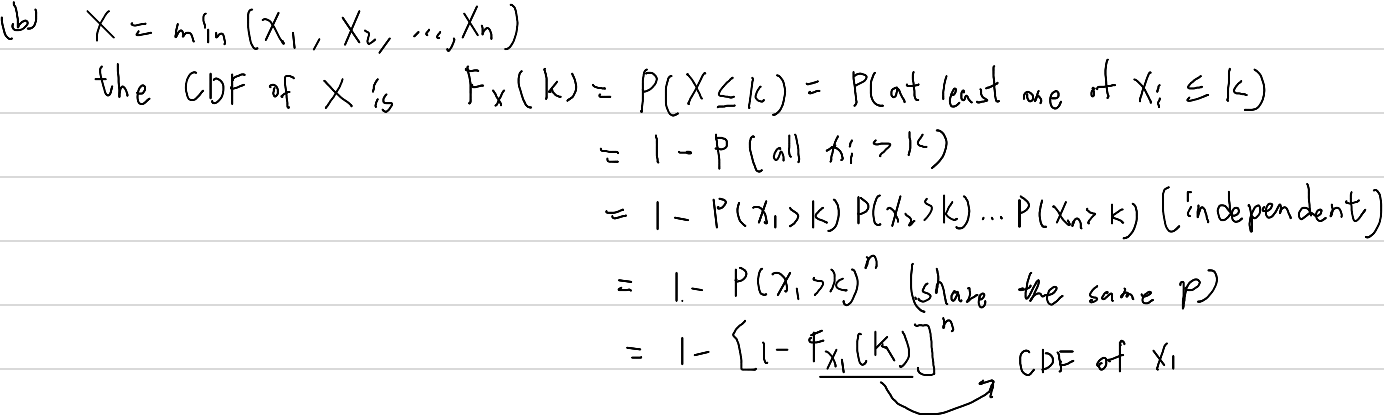 (b) X = min (X₁, X₂, ..., Xn)
the CDF of X is Fₓ(k) = P(X ≤ k) = P(at least one of Xᵢ ≤ k)
= 1 - P (all xᵢ > k)
= 1 - P(x₁ > k) P(x₂ > k) ... P(xn > k) (independent)
= 1 - P(x₁ > k)ⁿ (share the same p)
= 1 - [1 - F_X₁(k)]ⁿ → CDF of X₁